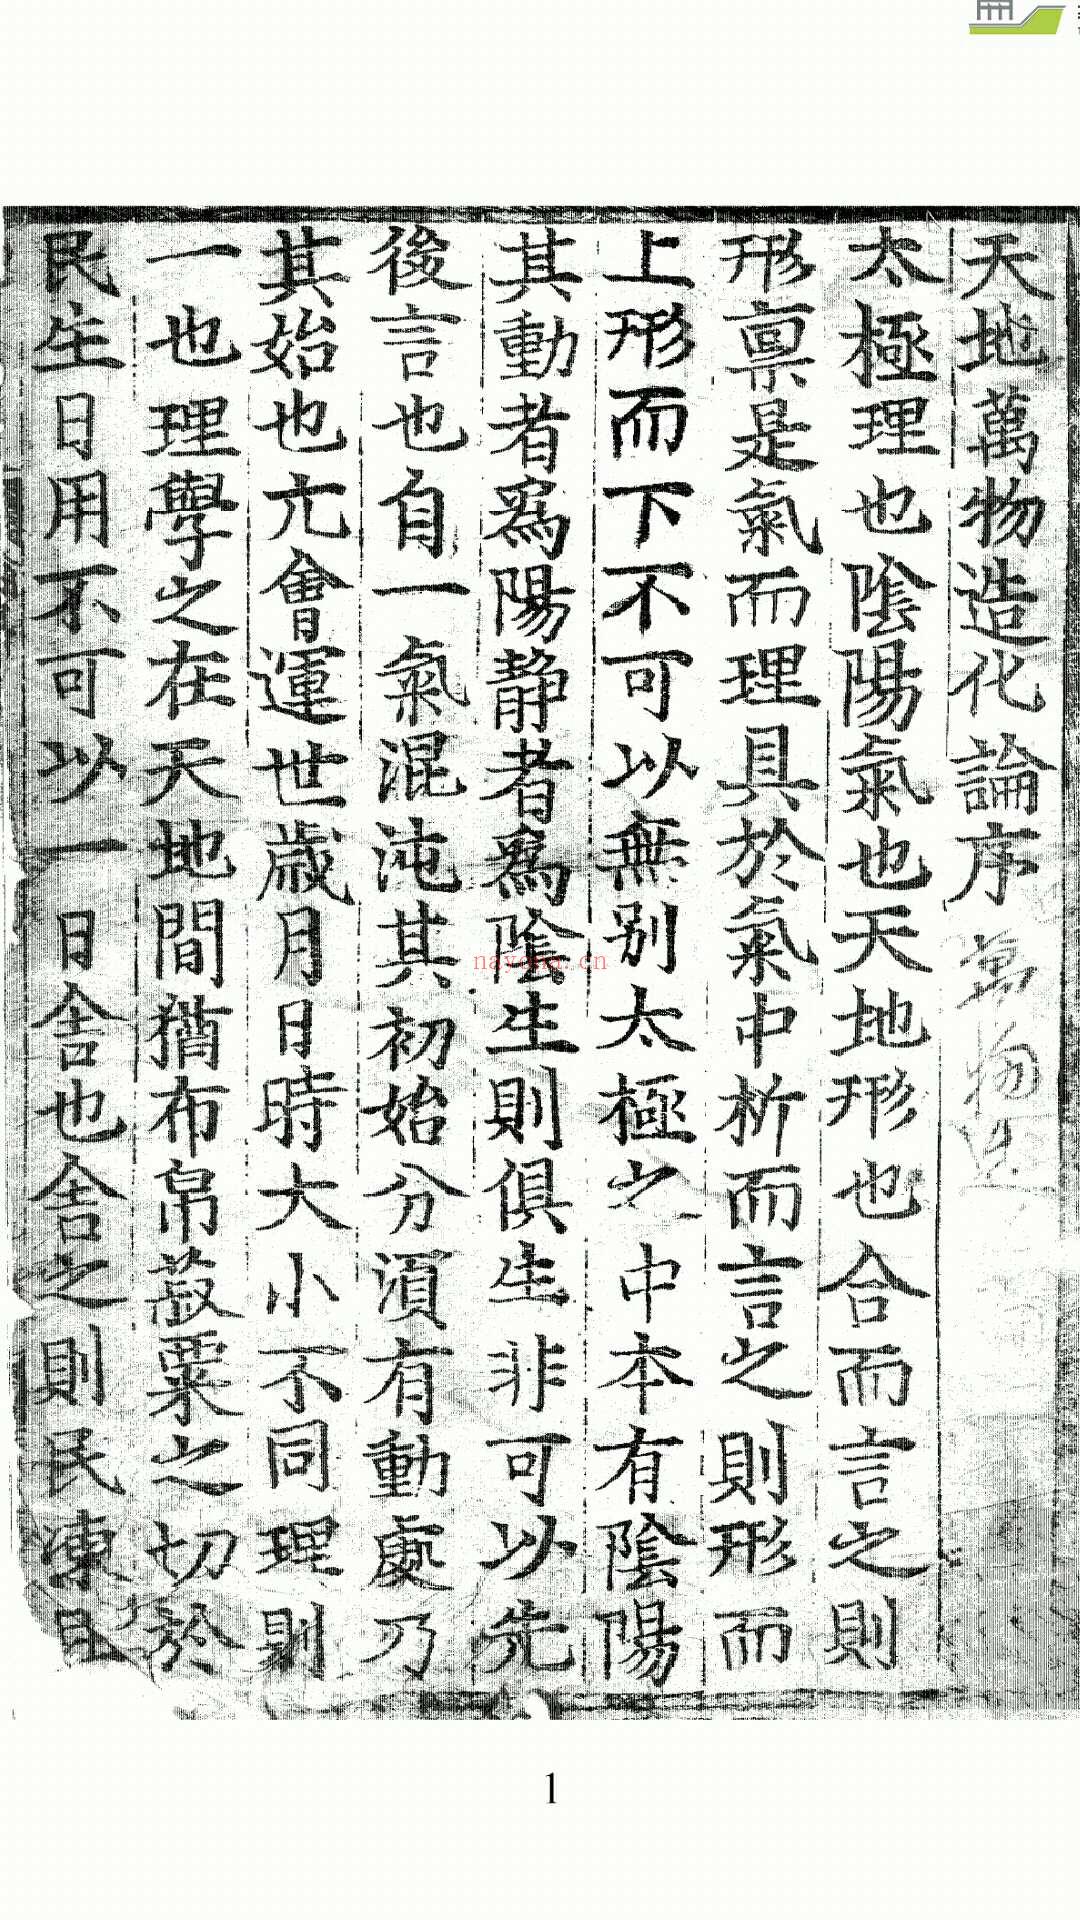 天地萬物造化論序
太極理也陰陽氣也天地形也合而言之則
形稟是氣而理具於氣中析而言之則形而
上形而下不可以無別太極之中本有陰陽
其動者爲陽静者爲陰生則俱生非可以先
後言也自一氣混沌其初始分湏有動處乃
其始也亢會運世歲月日時大小不同理則
一也理學之在天地間猶布帛菽粟之切於
民生日用不可以一日舍也舍之則民凍且
nayona.cn
1